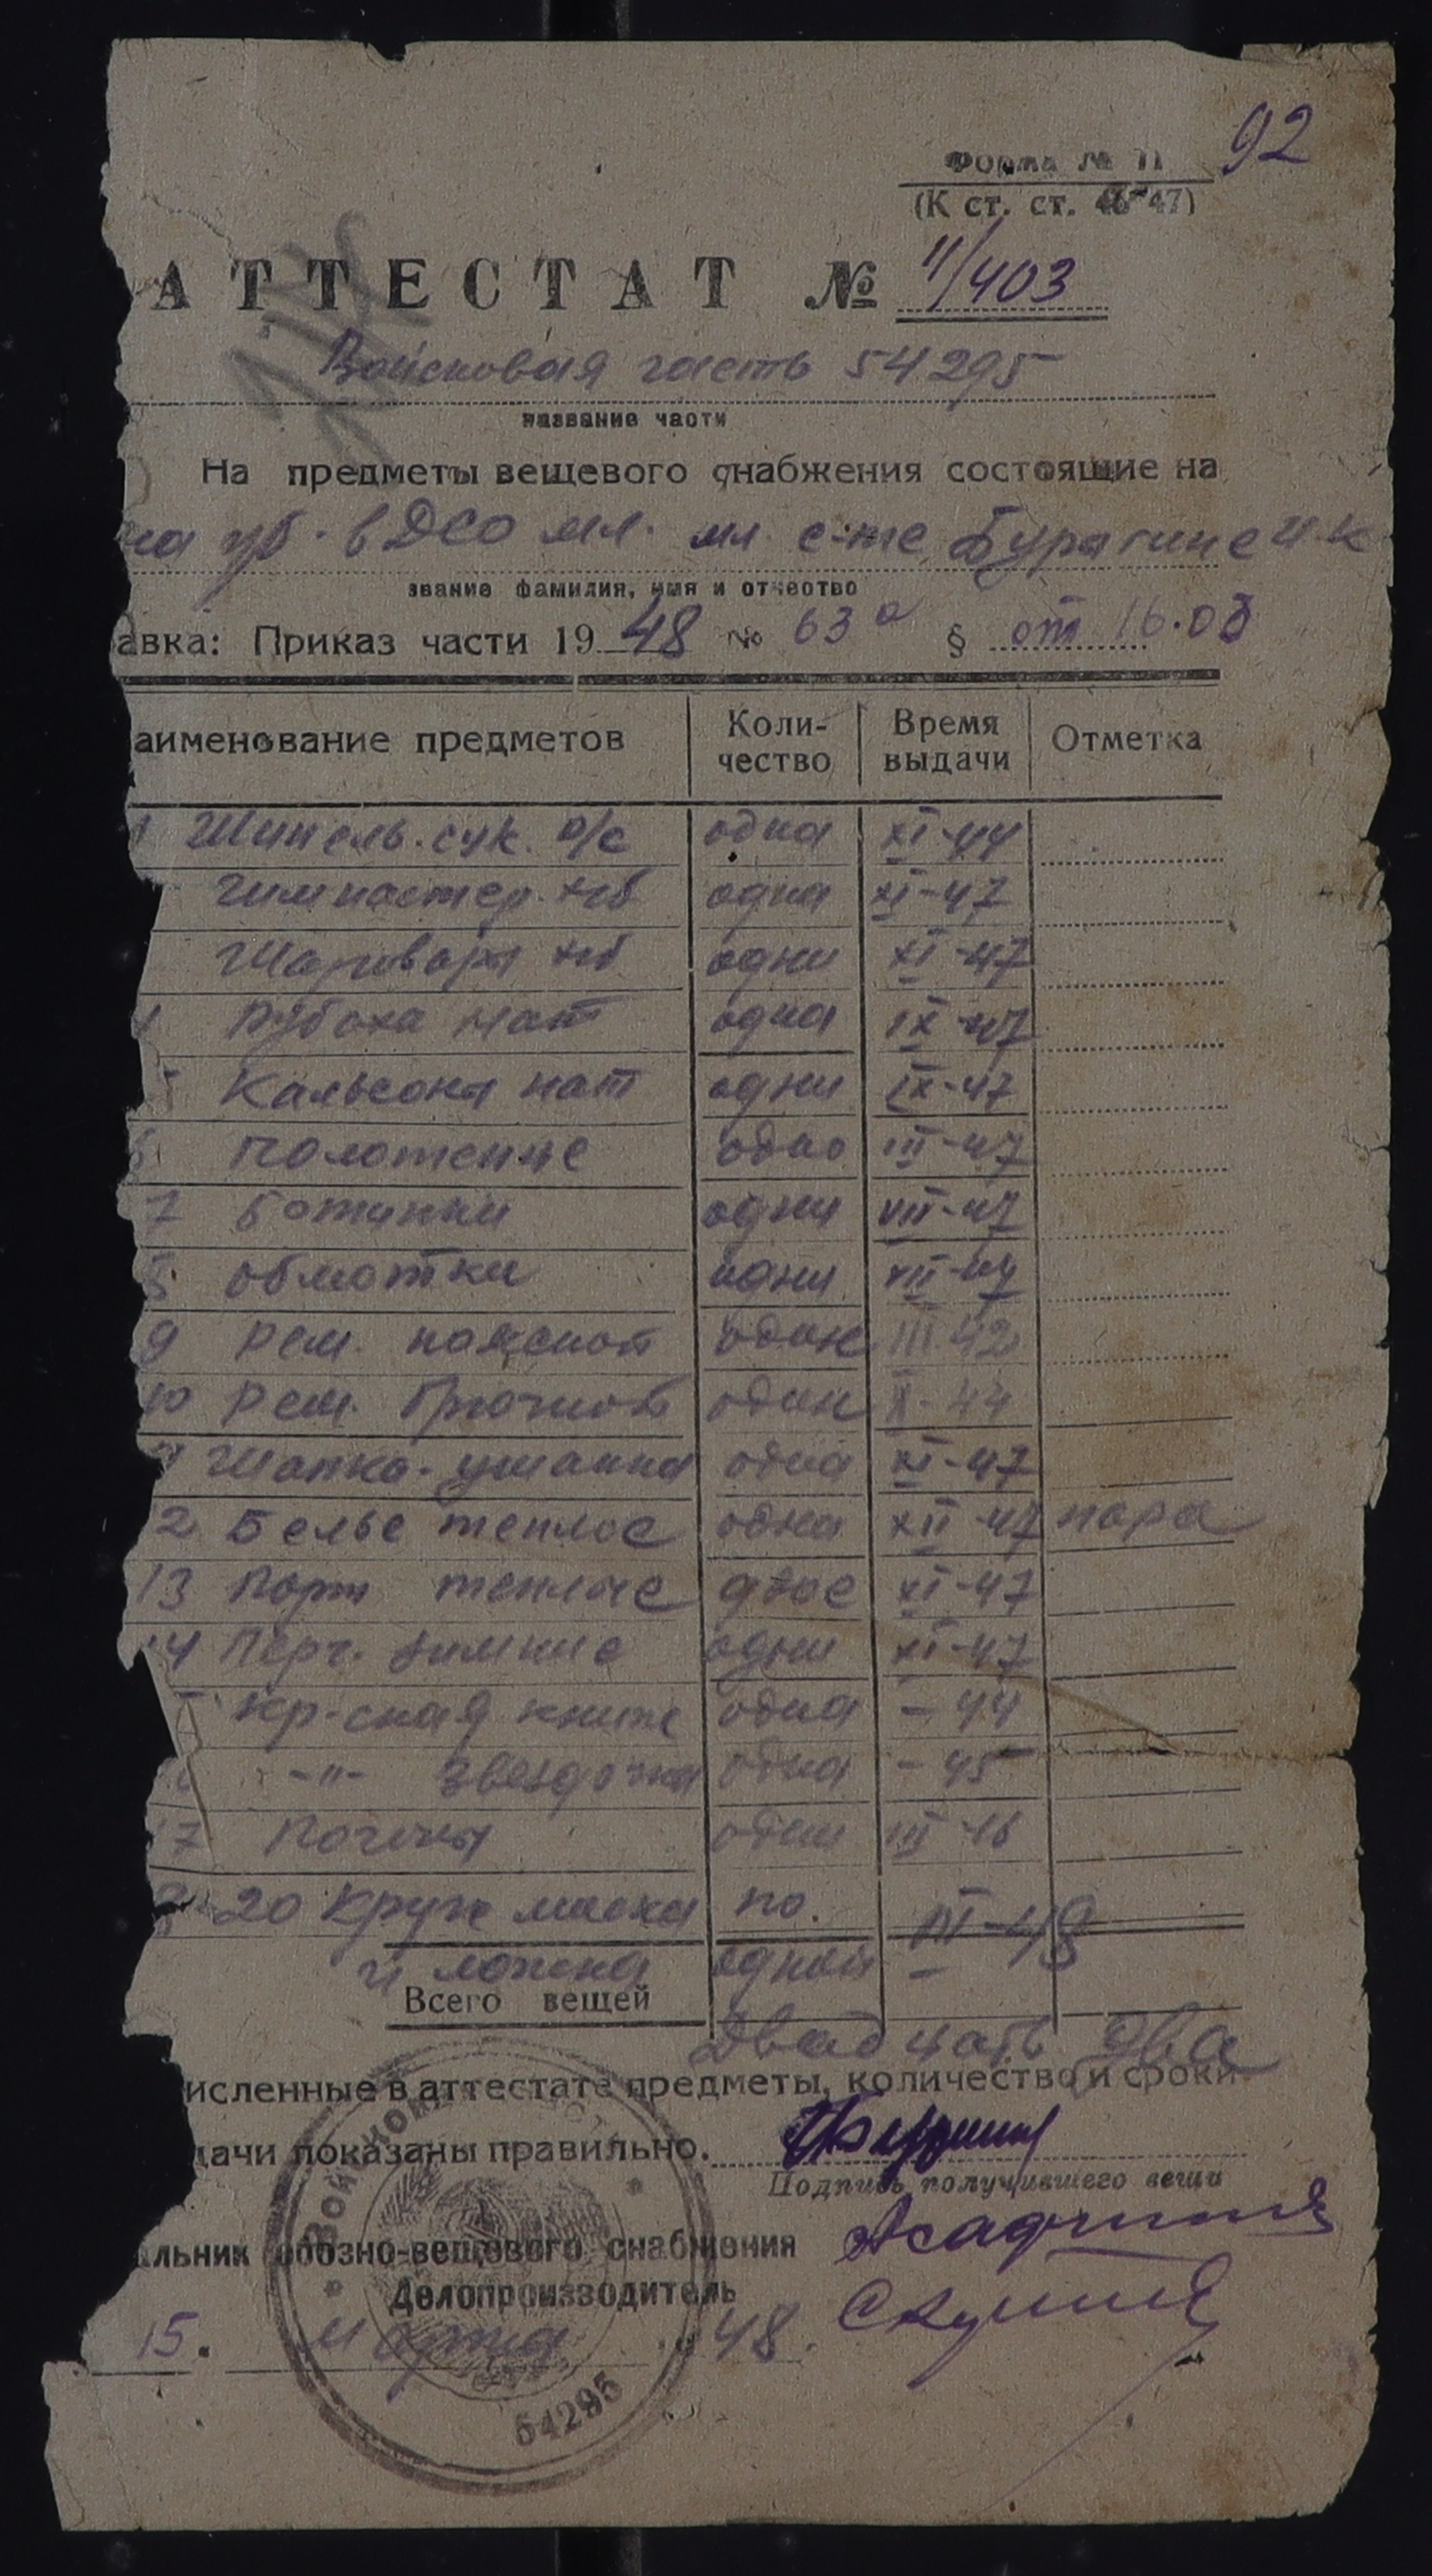 92
Форма № 11
(К ст. ст. 46-47)
АТТЕСТАТ № 11/403
Войсковая часть 54295
название части
На предметы вещевого снабжения состоящие на
на уб. в ДСО мл. мл. с-те
звание фамилия, имя и отчество
авка: Приказ части 1948 № 63а § от 16.03
аименование предметов Коли-чество Время выдачи Отметка
1 Шинель. сук. о/с одна XI-44
Гимнастер. х/б одна XI-47
Шаровары х/б одни XI-47
4 Рубаха нат одна IX-47
5 Кальсоны нат одни IX-47
6 Полотенце одно III-47
7 Ботинки одни VII-47
8 обмотки одни VII-47
9 Рем. поясной один III-42
10 Рем. брючной один X-44
Шапка-ушанка одна XI-47
2 Белье теплое одна XII-47 пара
13 Порт теплые двое XI-47
14 Перч. зимние одни XI-47
Кр-ская книж одна -44
-"- звездочка одна -45
17 Погоны одни III-46
20 Круж миска по. III-48
и ложка одной -
Всего вещей
Двадцать два
исленные в аттестате предметы, количество и сроки
дачи показаны правильно.
Подпись получившего вещи
альник обозно-вещевого снабжения
Делопроизводитель
15. марта 48.
54295